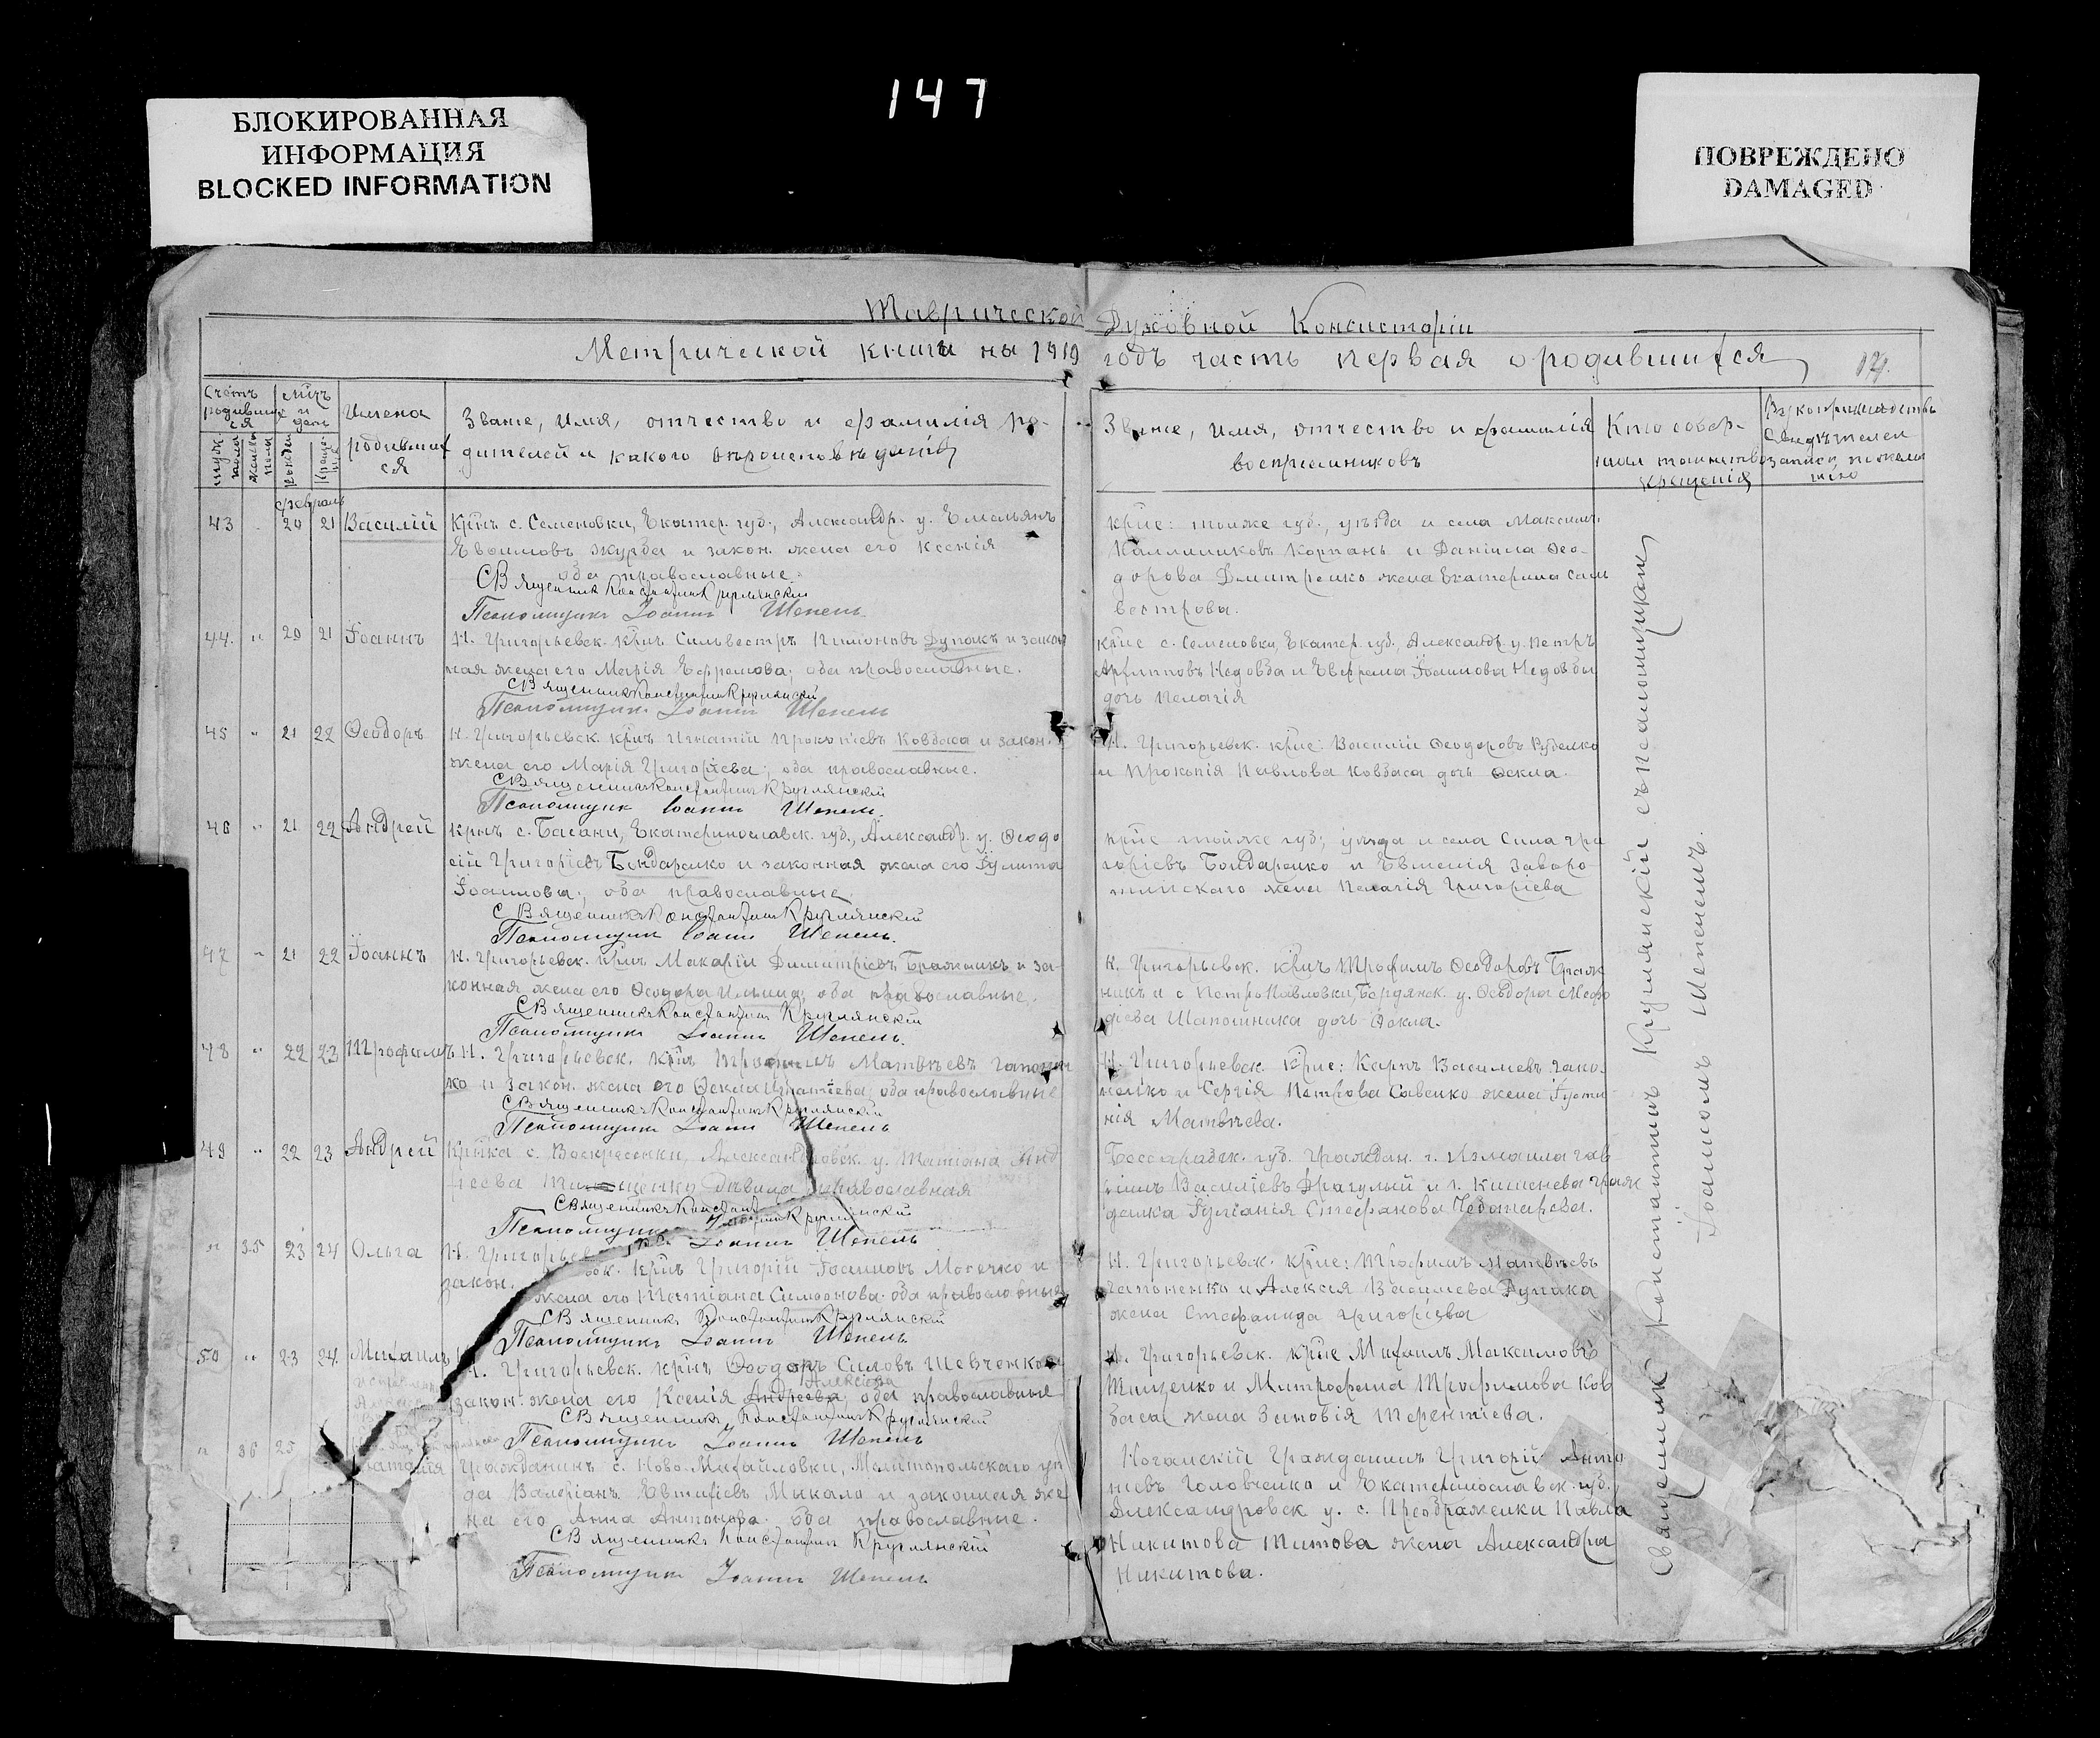 147
БЛОКИРОВАННАЯ
ИНФОРМАЦИЯ
BLOCKED INFORMATION
ПОВРЕЖДЕНО
DAMAGED
Таврической Духовной Консисторіи
Метрической книги на 1919 годъ часть первая о родившихся
Счетъ родившихся
мужск. пола
женска пола
Мѣсяцъ и день
рожден
креще-нія
Имена родившихся
Званіе, имя, отчество и фамилія ро-
дителей и какого вѣроисповѣданія
Званіе, имя, отчество и фамилія
воспріемниковъ
Кто совер-
шил таинство
крещенія
Рукоприкладство
свидѣтелей
записи по жела
нію
февраль
43 20 21 Василій
Крнъ с. Семеновки, Екатер. губ., Александр. у. Емельянъ
Евфимовъ Журба и закон. жена его Ксенія
оба православные.
Священникъ Константинъ Круглянскій
Псаломщикъ Іоаннъ Шепель
Крне: тойже губ., уѣзда и села Максимъ
Каллиниковъ Корпань и Даніила Ѳео-
дорова Дмитренко жена Екатерина Силь
вестрова.
44. " 20 21 Іоаннъ
Н. Григорьевск. крнъ Сильвестръ Пимоновъ Дупакъ и закон
ная жена его Марія Ефремова; оба православные.
Священникъ Константинъ Круглянскій
Псаломщикъ Іоаннъ Шепель
Крне с. Семеновки, Екатер. губ., Александр. у. Петръ
Архиповъ Недовба и Ефрема Іоаннова Недовбы
дочь Пелагія
45 " 21 22 Ѳеодоръ
Н. Григорьевск. крнъ Игнатій Прокопіевъ Ковбаса и закон.
жена его Марія Григоріева; оба православные.
Священникъ Константинъ Круглянскій
Псаломщикъ Іоаннъ Шепель.
Н. Григорьевск. крне: Василій Ѳеодоровъ Руденко
и Прокопія Павлова Ковбаса дочь Ѳекла.
46 " 21 22 Андрей
Крнъ с. Басани, Екатеринославск. губ., Александр. у. Ѳеодо
сій Григоріевъ Бондаренко и законная жена его Іулита
Іоаннова; оба православные.
Священникъ Константинъ Круглянскій
Псаломщикъ Іоаннъ Шепель.
Крне тойже губ; уѣзда и села Сила Гри
горіевъ Бондаренко и Евгенія Заворо-
тинскаго жена Пелагія Григоріева
47 " 21 22 Іоаннъ
Н. Григорьевск. крнъ Макарій Димитріевъ Бражникъ и за-
конная жена его Ѳеодора Ильина; оба православные.
Священникъ Константинъ Круглянскій
Псаломщикъ Іоаннъ Шепель.
Н. Григорьевск. крнъ Трофимъ Ѳеодоровъ Браж
никъ и с Петропавловки, Бердянск. у. Ѳеодора Меѳо
діева Шапошника дочь Ѳекла.
48 " 22 23 Трофимъ
Н. Григорьевск. крнъ Трофимъ Матвѣевъ Гапонен
ко и закон. жена его Ѳекла Игнатіева; оба православные
Священникъ Константинъ Круглянскій
Псаломщикъ Іоаннъ Шепель
Н. Григорьевск. крне: Карпъ Василіевъ Гапо-
ненко и Сергія Петрова Савенко жена Іусти
нія Матвѣева.
49 " 22 23 Андрей
Крнка с. Воскресенки, Александровск. у. Татіана Анд
реева Давида православная
Священникъ Константинъ Круглянскій
Псаломщикъ Іоаннъ Шепель
Бессарабск. губ. Граждан. г. Измаила Гав
ріилъ Василіевъ Драгулый и г. Кишенева граж
данка Іуліанія Стефанова Чеботарева.
" 35 23 24 Ольга
Н. Григорьевск. крнъ Григорій Іоанновъ Мотечко и
закон. жена его Татіана Симеонова. оба православныя
Священникъ Константинъ Круглянскій
Псаломщикъ Іоаннъ Шепель
Н. Григорьевск. крне: Трофимъ Матвѣевъ
Гапоненко и Алексія Василіева Дупака
жена Стефанида Григоріева
50 " 23 24 Михаилъ
Н. Григорьевск. крнъ Ѳеодоръ Силовъ Шевченко и
Алексіева
закон. жена его Ксенія Андреева; оба православные
Священникъ Константинъ Круглянскій
Псаломщикъ Іоаннъ Шепель
Н. Григорьевск. крне Михаилъ Максимовъ
Тищенко и Митрофана Трофимова Ков
баса жена Зиновія Терентіева.
" 36 25 Наталія
Гражданинъ с. Ново-Михайловки, Мелитопольскаго уѣз
да Валеріанъ Евтихіевъ Микало и законная же
на его Анна Антонова. Оба православные.
Священникъ Константинъ Круглянскій
Псаломщикъ Іоаннъ Шепель
Ногайскій Гражданинъ Григорій Анто
ніевъ Головченко и Екатеринославск. губ.
Александровск у. с. Преображенки Павла
Никитова Титова жена Александра
Никитова.
Священникъ Константинъ Круглянскій съ псаломщикомъ
Іоанномъ Шепелемъ.